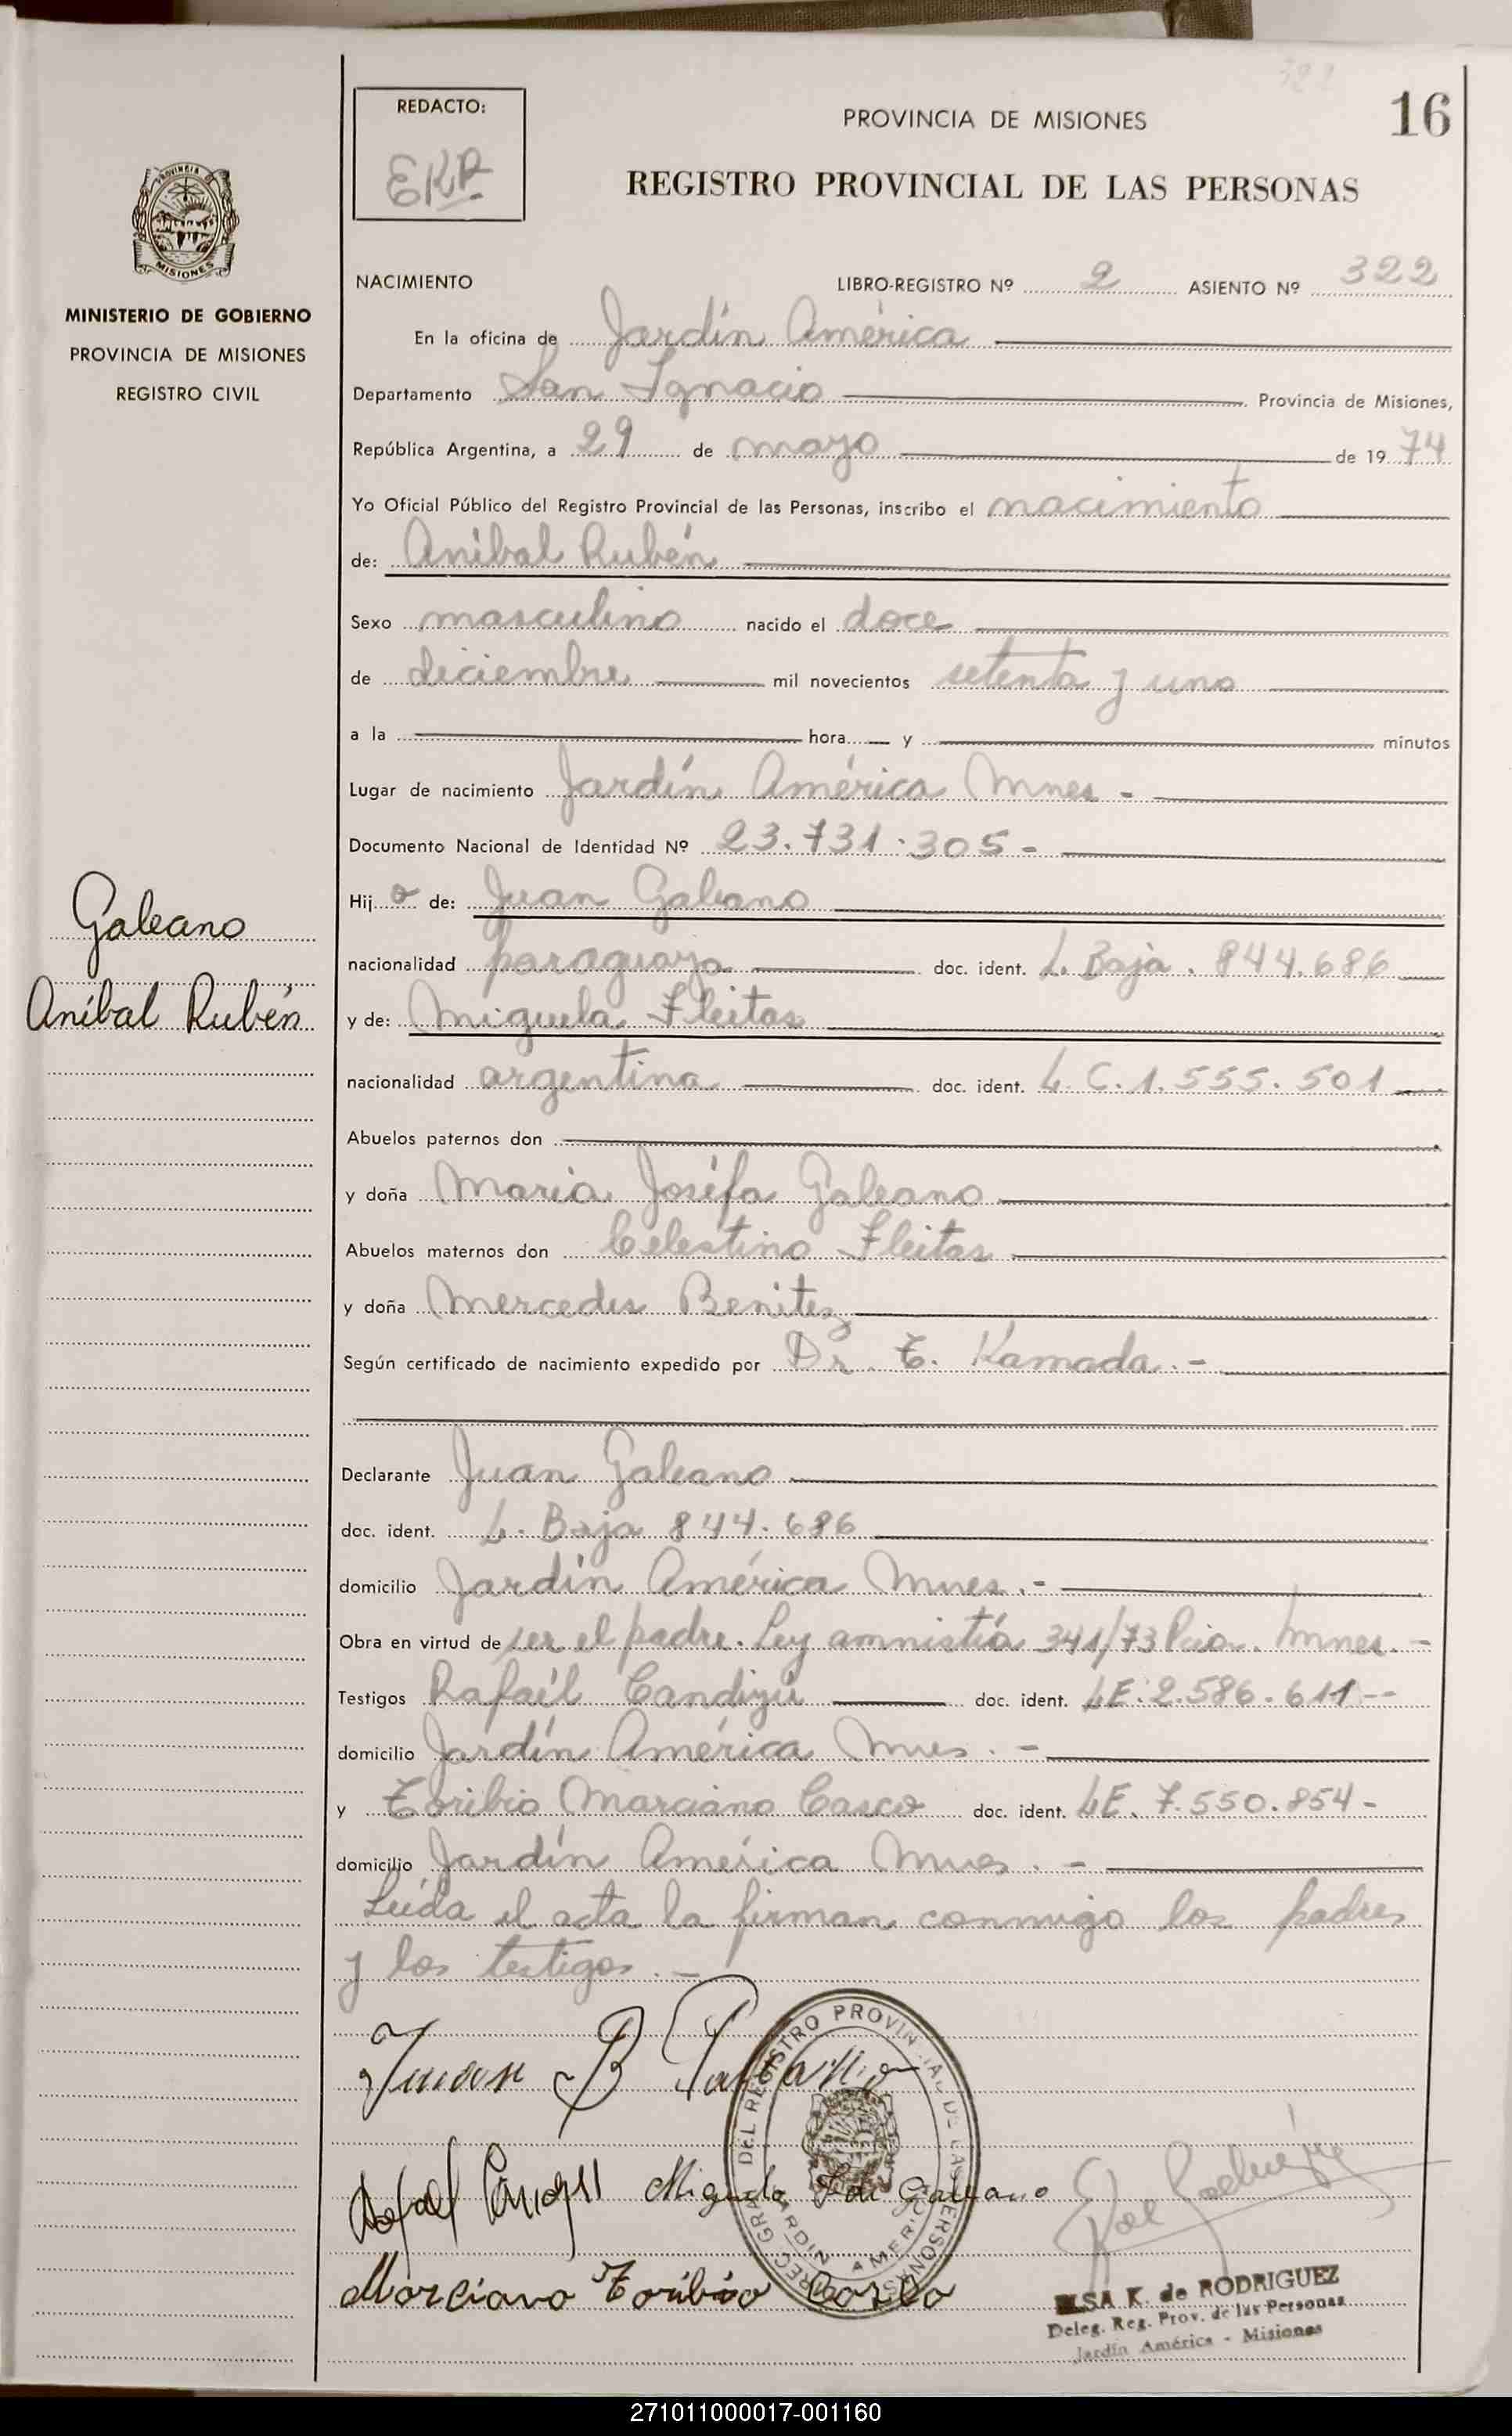 REDACTO:
EKR
PROVINCIA DE MISIONES
322
16
REGISTRO PROVINCIAL DE LAS PERSONAS
PROVINCIA
MISIONES
MINISTERIO DE GOBIERNO
PROVINCIA DE MISIONES
REGISTRO CIVIL
NACIMIENTO LIBRO-REGISTRO Nº 2 ASIENTO Nº 322
En la oficina de Jardín América
Departamento San Ignacio Provincia de Misiones,
República Argentina, a 29 de mayo de 19 74
Yo Oficial Público del Registro Provincial de las Personas, inscribo el nacimiento
de: Aníbal Rubén
Sexo masculino nacido el doce
de diciembre mil novecientos setenta y uno
a la hora y minutos
Lugar de nacimiento Jardín América Mnes -
Documento Nacional de Identidad Nº 23.731.305 -
Hijo de: Juan Galeano
nacionalidad paraguaya doc. ident. L. Baja. 844.686
Galeano
Aníbal Rubén
y de: Miguela Fleitas
nacionalidad argentina doc. ident. L.C. 1.555.501
Abuelos paternos don
y doña María Josefa Galeano
Abuelos maternos don Celestino Fleitas
y doña Mercedes Benitez
Según certificado de nacimiento expedido por Dr. T. Kamada. -
Declarante Juan Galeano
doc. ident. L. Baja 844.686
domicilio Jardín América Mnes. -
Obra en virtud de ser el padre. Ley amnistía 341/73 Pcia. Mnes. -
Testigos Rafaél Candizú doc. ident. LE. 2.586.611 --
domicilio Jardín América Mnes. -
y Toribio Marciano Casco doc. ident. LE. 7.550.854 -
domicilio Jardín América Mnes. -
Leída el acta la firman conmigo los padres
y los testigos. -
DEL REGISTRO PROVINCIAL DE LAS PERSONAS
JARDIN AMERICA
Rafael Miguela F de Galeano
Marciano Toribio Casco
ELSA K. de RODRIGUEZ
Deleg. Reg. Prov. de las Personas
Jardín América - Misiones
271011000017-001160